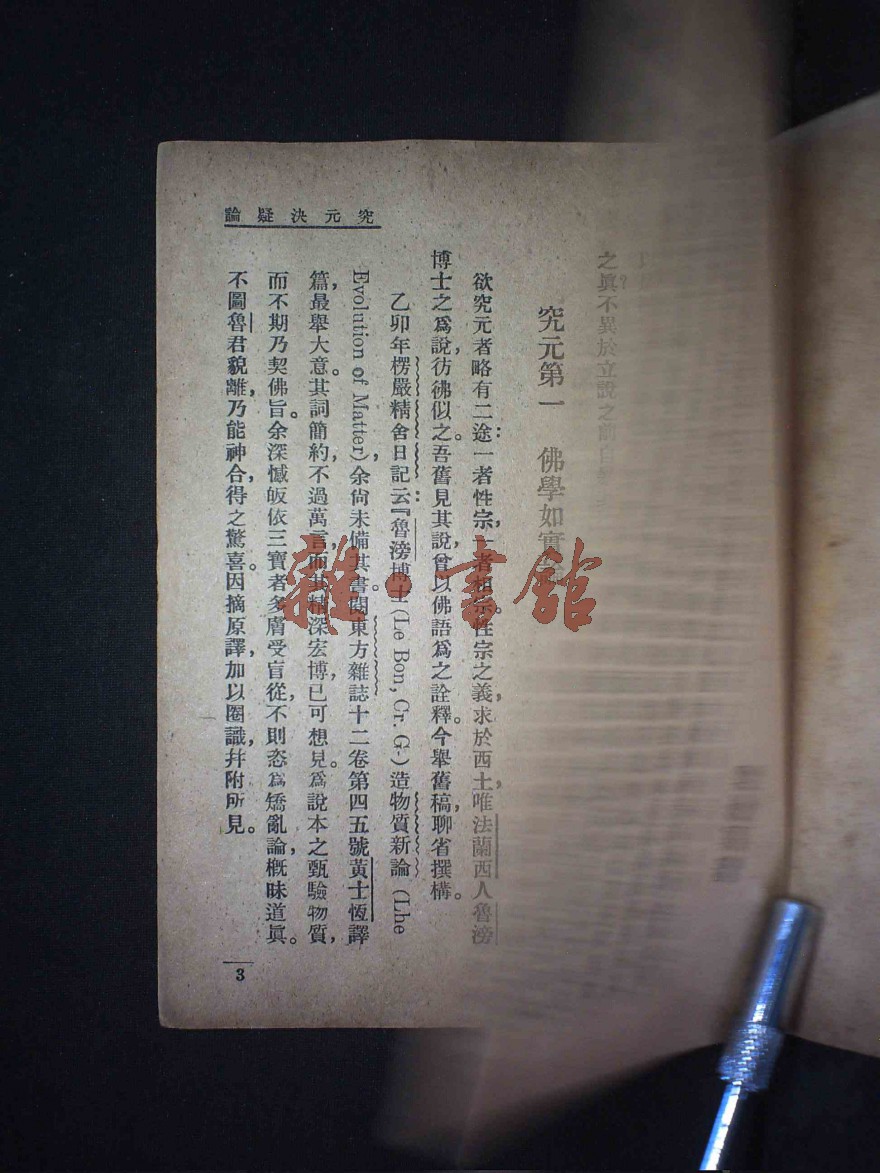 究元決疑論
之眞不異於立說之前
究元第一　佛學如實
欲究元者略有二途：一者性宗，一者相宗。性宗之義，求於西土，唯法蘭西人魯滂
博士之爲說，彷彿似之。吾舊見其說，曾以佛語爲之詮釋。今舉舊稿，聊省撰構。
乙卯年楞嚴精舍日記云：『魯滂博士(Le Bon, Cr. G.)造物質新論(Lhe
Evolution of Matter)，余尙未備其書。閱東方雜誌十二卷第四五號黃士恆譯
篇，最舉大意。其詞簡約，不過萬言，而其精深宏博，已可想見。爲說本之甄驗物質，
而不期乃契佛旨。余深憾皈依三寶者多膚受盲從，不則恣爲矯亂論，槪昧道眞。
不圖魯君貌離，乃能神合，得之驚喜。因摘原譯，加以圈識，幷附所見。
3
雜·書館